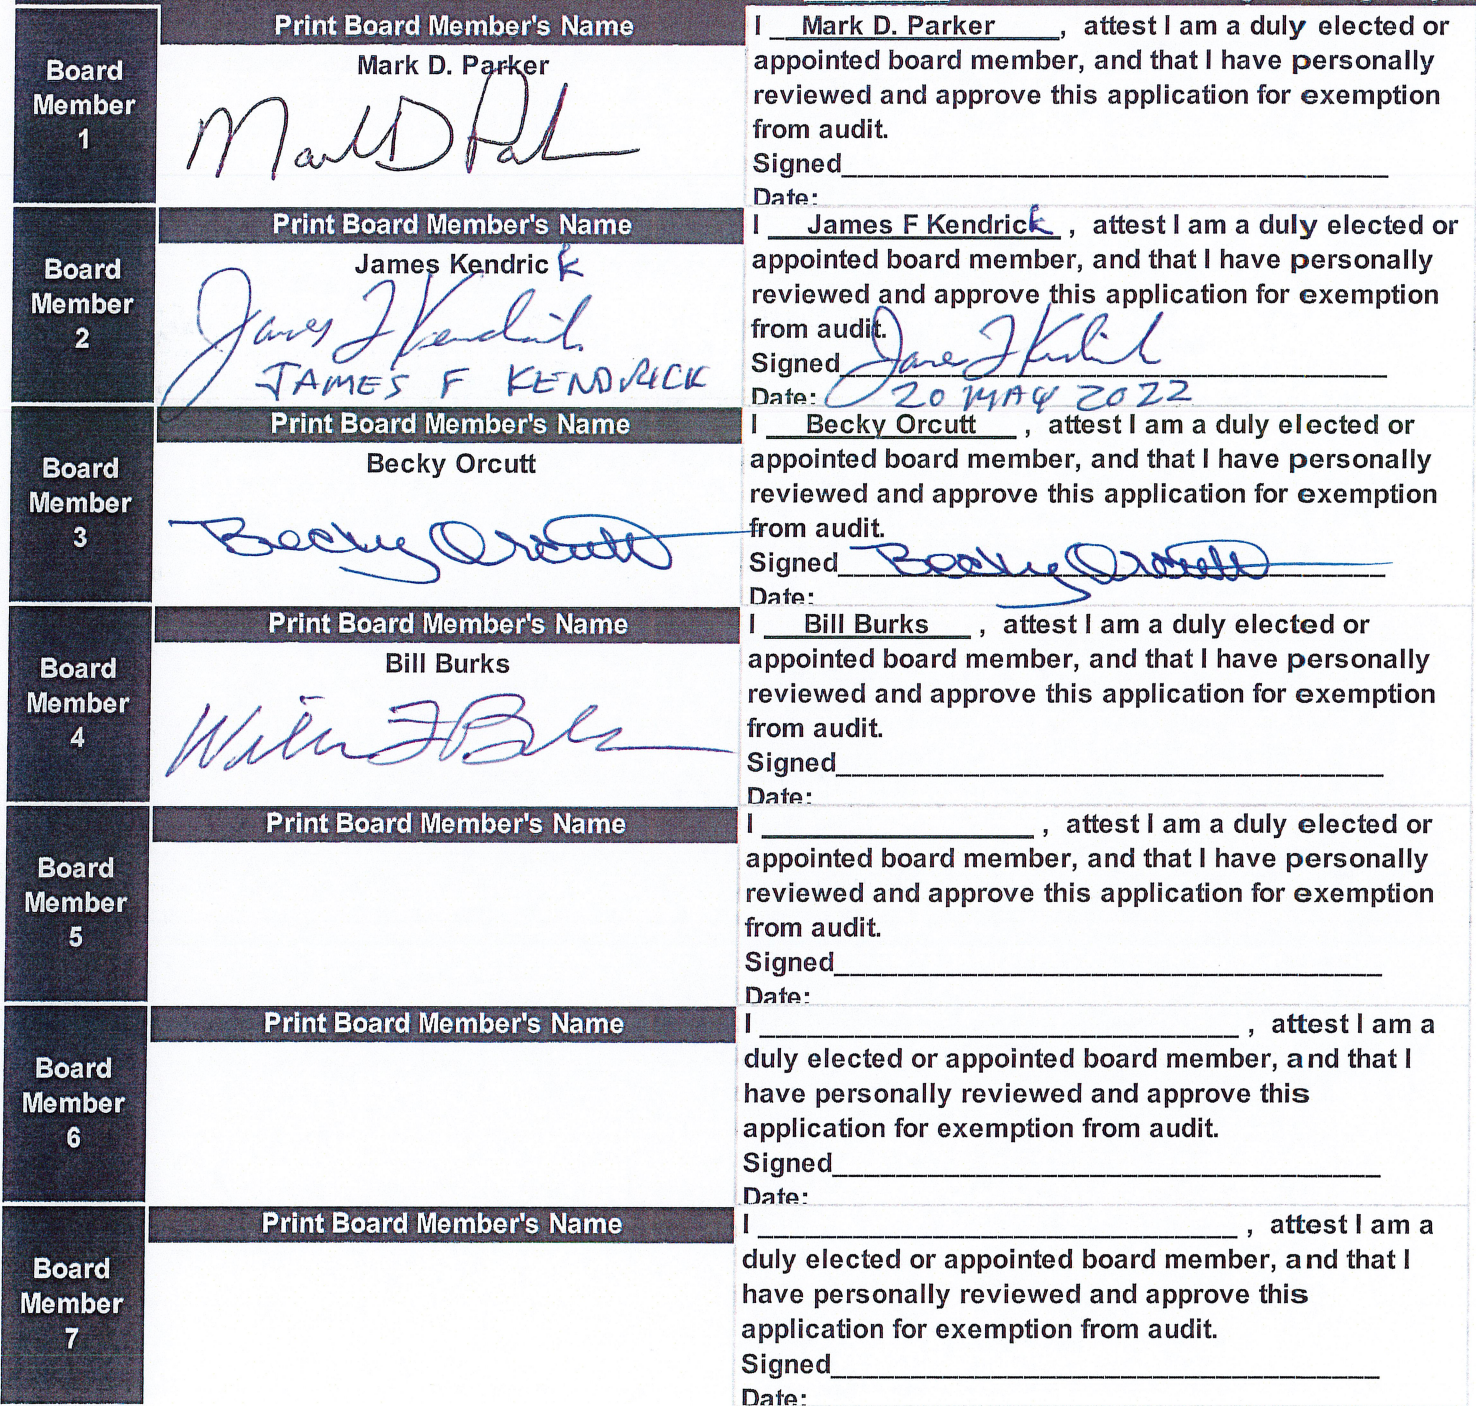 Board Member 1
Print Board Member's Name
Mark D. Parker
Mark D Parker
I Mark D. Parker, attest I am a duly elected or
appointed board member, and that I have personally
reviewed and approve this application for exemption
from audit.
Signed
Date:
Board Member 2
Print Board Member's Name
James Kendrick
James F Kendrick
JAMES F KENDRICK
I James F Kendrick, attest I am a duly elected or
appointed board member, and that I have personally
reviewed and approve this application for exemption
from audit.
Signed James F Kendrick
Date: 20 MAY 2022
Board Member 3
Print Board Member's Name
Becky Orcutt
Becky Orcutt
I Becky Orcutt, attest I am a duly elected or
appointed board member, and that I have personally
reviewed and approve this application for exemption
from audit.
Signed Becky Orcutt
Date:
Board Member 4
Print Board Member's Name
Bill Burks
I Bill Burks, attest I am a duly elected or
appointed board member, and that I have personally
reviewed and approve this application for exemption
from audit.
Signed
Date:
Board Member 5
Print Board Member's Name
I , attest I am a duly elected or
appointed board member, and that I have personally
reviewed and approve this application for exemption
from audit.
Signed
Date:
Board Member 6
Print Board Member's Name
I , attest I am a
duly elected or appointed board member, and that I
have personally reviewed and approve this
application for exemption from audit.
Signed
Date:
Board Member 7
Print Board Member's Name
I , attest I am a
duly elected or appointed board member, and that I
have personally reviewed and approve this
application for exemption from audit.
Signed
Date: